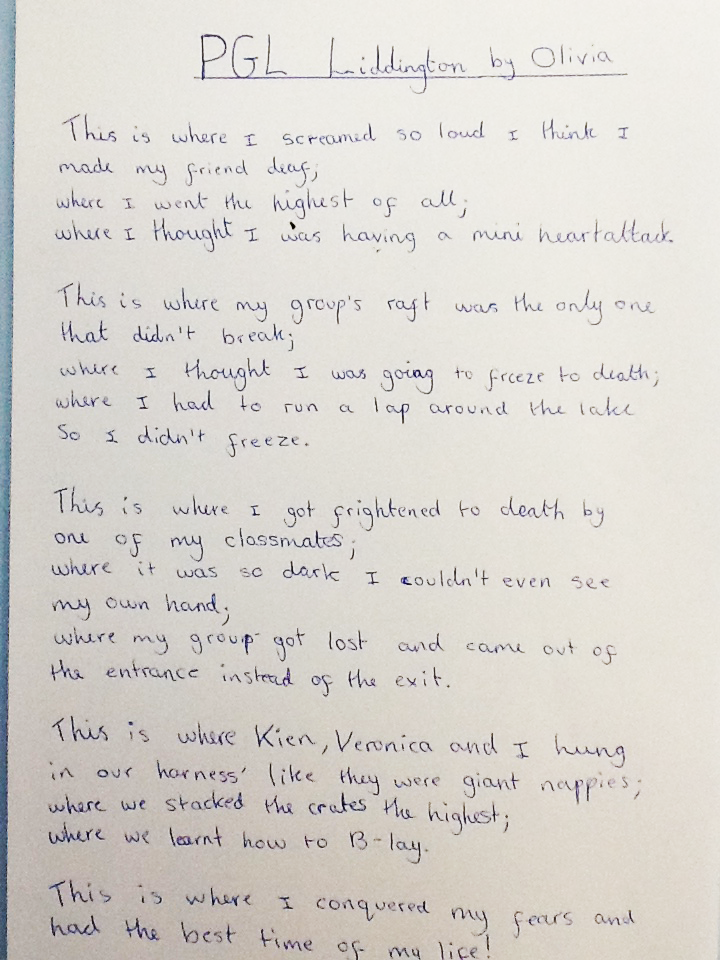 PGL Liddington by Olivia
This is where I screamed so loud I think I
made my friend deaf;
where I went the highest of all;
where I thought I was having a mini heartattack.
This is where my group's raft was the only one
that didn't break;
where I thought I was going to freeze to death;
where I had to run a lap around the lake
So I didn't freeze.
This is where I got frightened to death by
one of my classmates;
where it was so dark I couldn't even see
my own hand;
where my group got lost and came out of
the entrance instead of the exit.
This is where Kien, Veronica and I hung
in our harness' like they were giant nappies;
where we stacked the crates the highest;
where we learnt how to B-lay.
This is where I conquered my fears and
had the best time of my life!